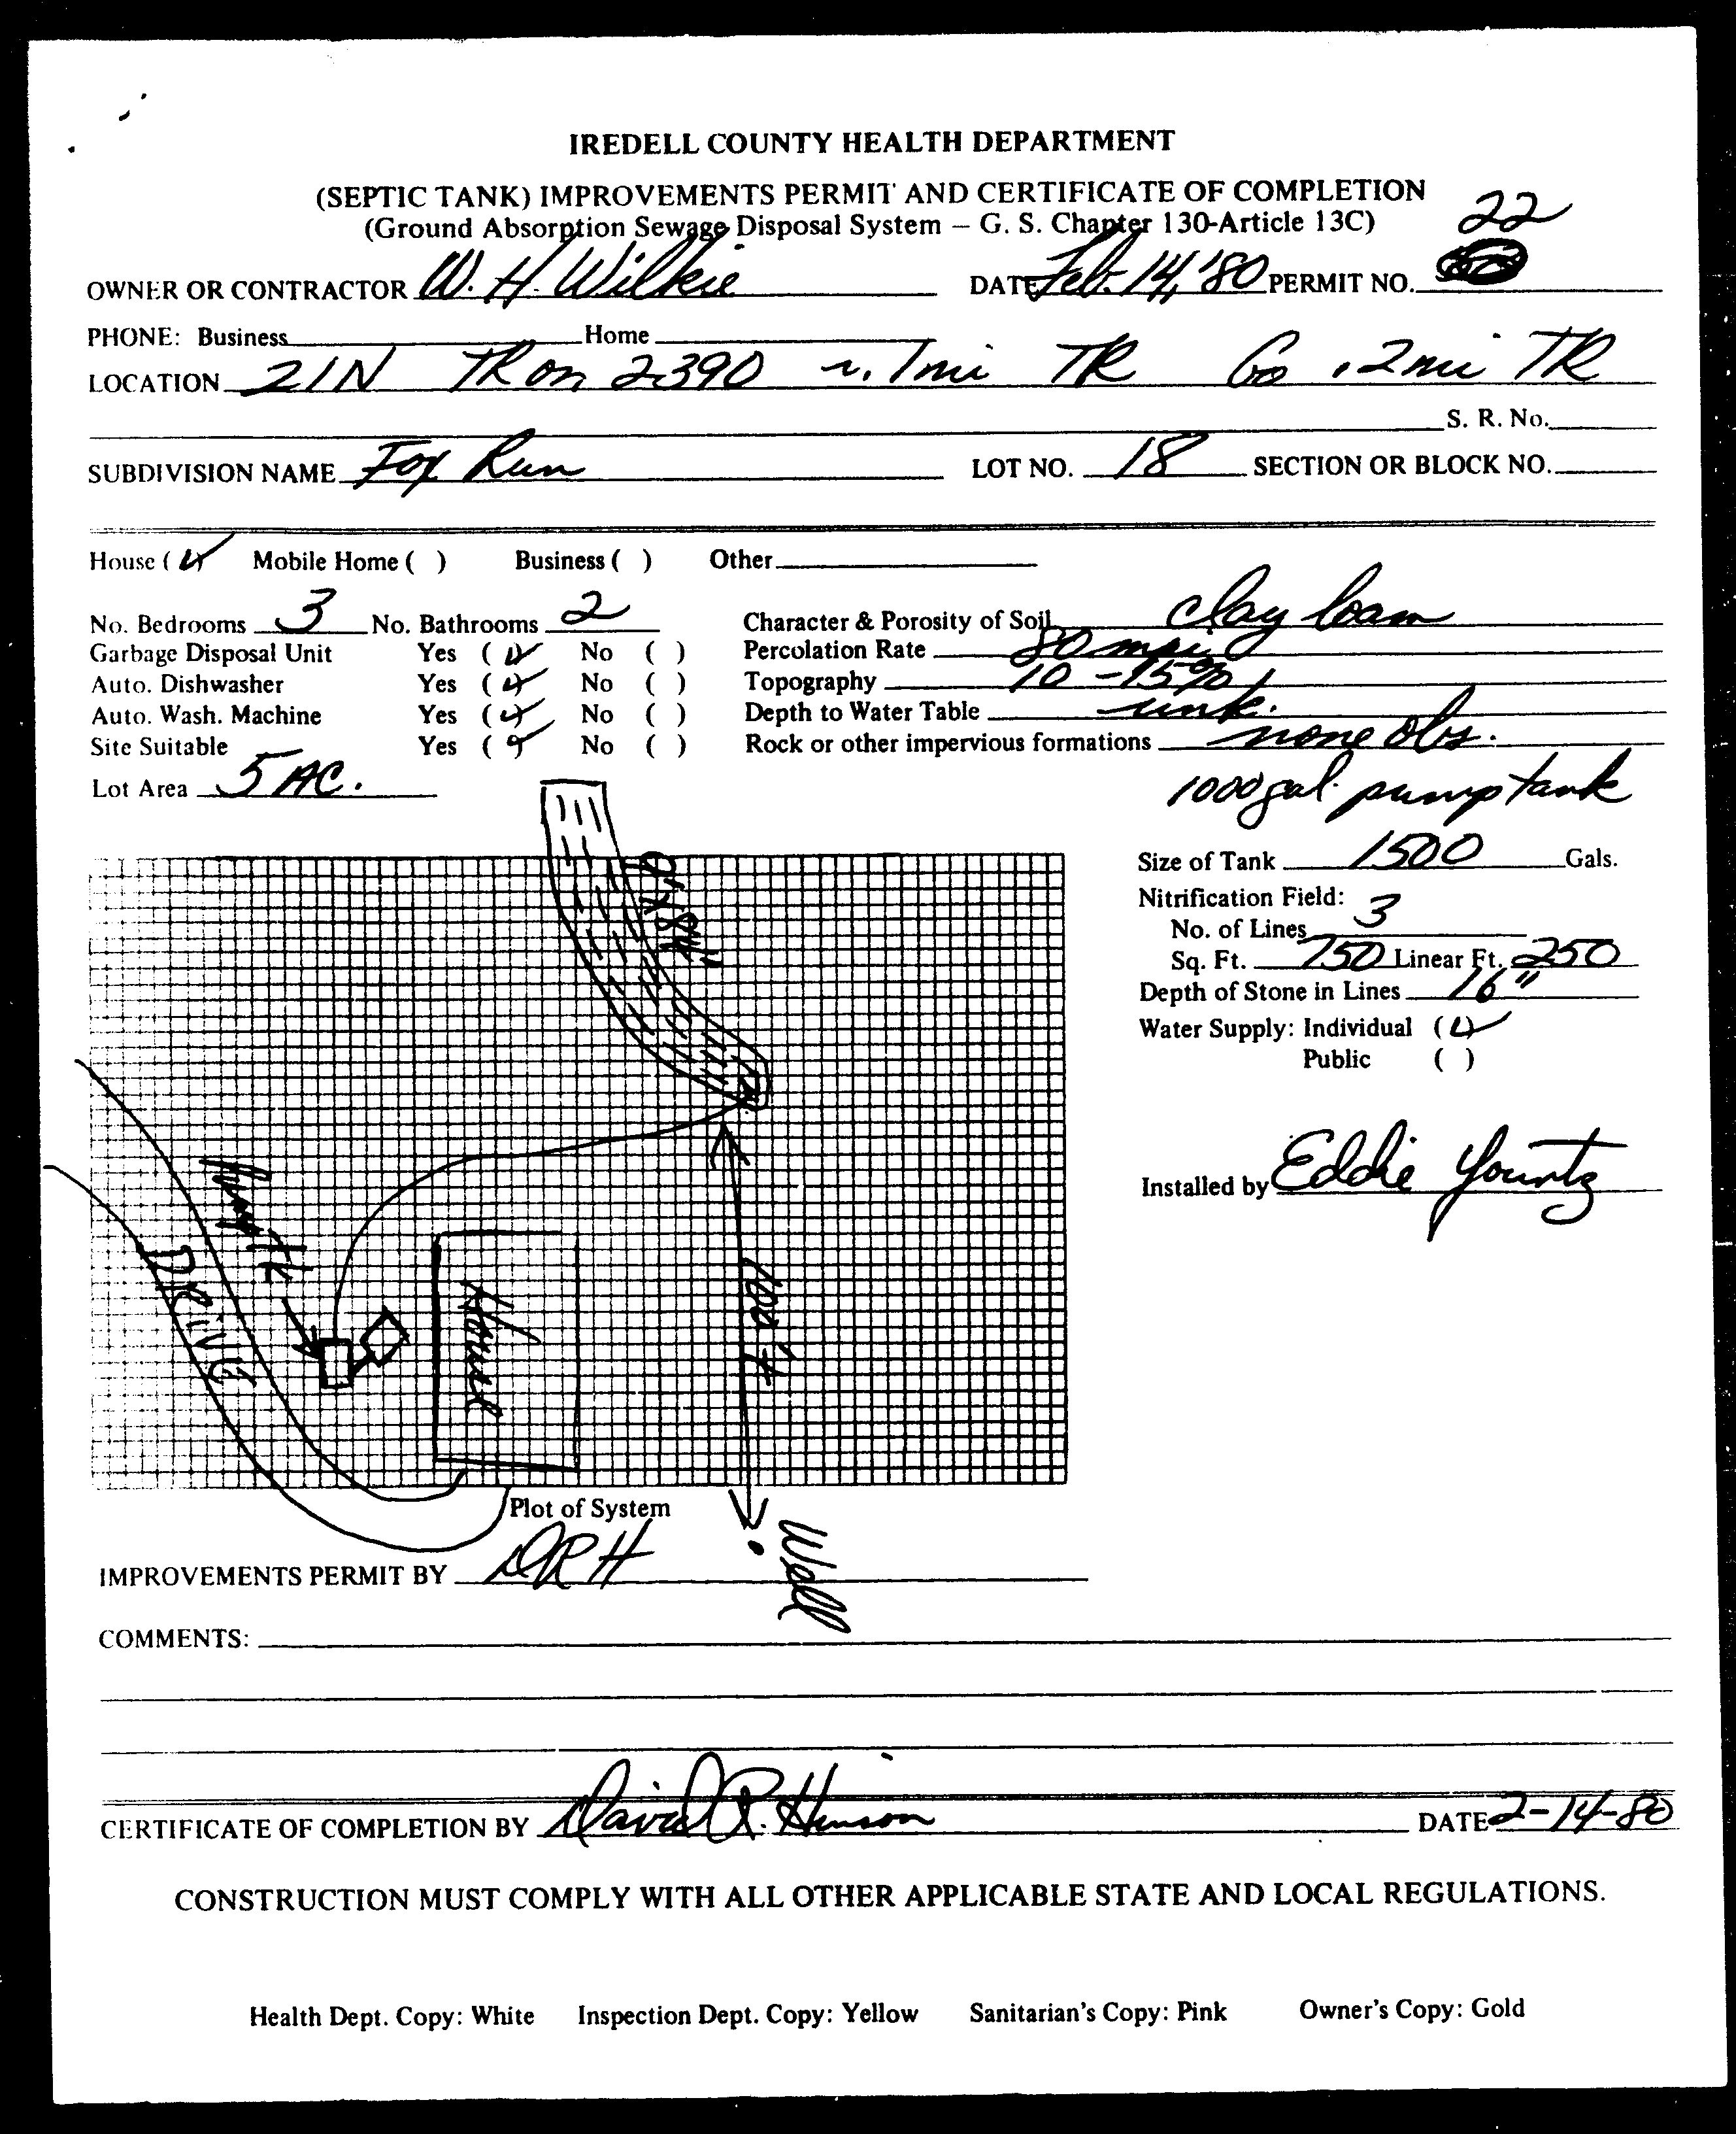 IREDELL COUNTY HEALTH DEPARTMENT
(SEPTIC TANK) IMPROVEMENTS PERMIT AND CERTIFICATE OF COMPLETION
(Ground Absorption Sewage Disposal System – G. S. Chapter 130-Article 13C)
22
OWNER OR CONTRACTOR W. H. Wilkie DATE Feb. 14, '80 PERMIT NO.
PHONE: Business Home
LOCATION 21N TR on 2390 1mi TR Go .2mi TR
S. R. No.
SUBDIVISION NAME Fox Run LOT NO. 18 SECTION OR BLOCK NO.
House ( ✓ ) Mobile Home ( ) Business ( ) Other
No. Bedrooms 3 No. Bathrooms 2 Character & Porosity of Soil clay loam
Garbage Disposal Unit Yes ( ✓ ) No ( ) Percolation Rate 80 mpi
Auto. Dishwasher Yes ( ✓ ) No ( ) Topography 10-15%
Auto. Wash. Machine Yes ( ✓ ) No ( ) Depth to Water Table unk.
Site Suitable Yes ( ✓ ) No ( ) Rock or other impervious formations none obs.
Lot Area 5 AC.
1000 gal. pump tank
Size of Tank 1500 Gals.
Nitrification Field:
No. of Lines 3
Sq. Ft. 750 Linear Ft. 250
Depth of Stone in Lines 16"
Water Supply: Individual ( ✓ )
Public ( )
Installed by Eddie Yountz
9'x84'
Pump tk
DRIVE
House
100'±
Well
Plot of System
IMPROVEMENTS PERMIT BY DRH
COMMENTS:
CERTIFICATE OF COMPLETION BY David R. Hinson DATE 2-14-80
CONSTRUCTION MUST COMPLY WITH ALL OTHER APPLICABLE STATE AND LOCAL REGULATIONS.
Health Dept. Copy: White Inspection Dept. Copy: Yellow Sanitarian's Copy: Pink Owner's Copy: Gold